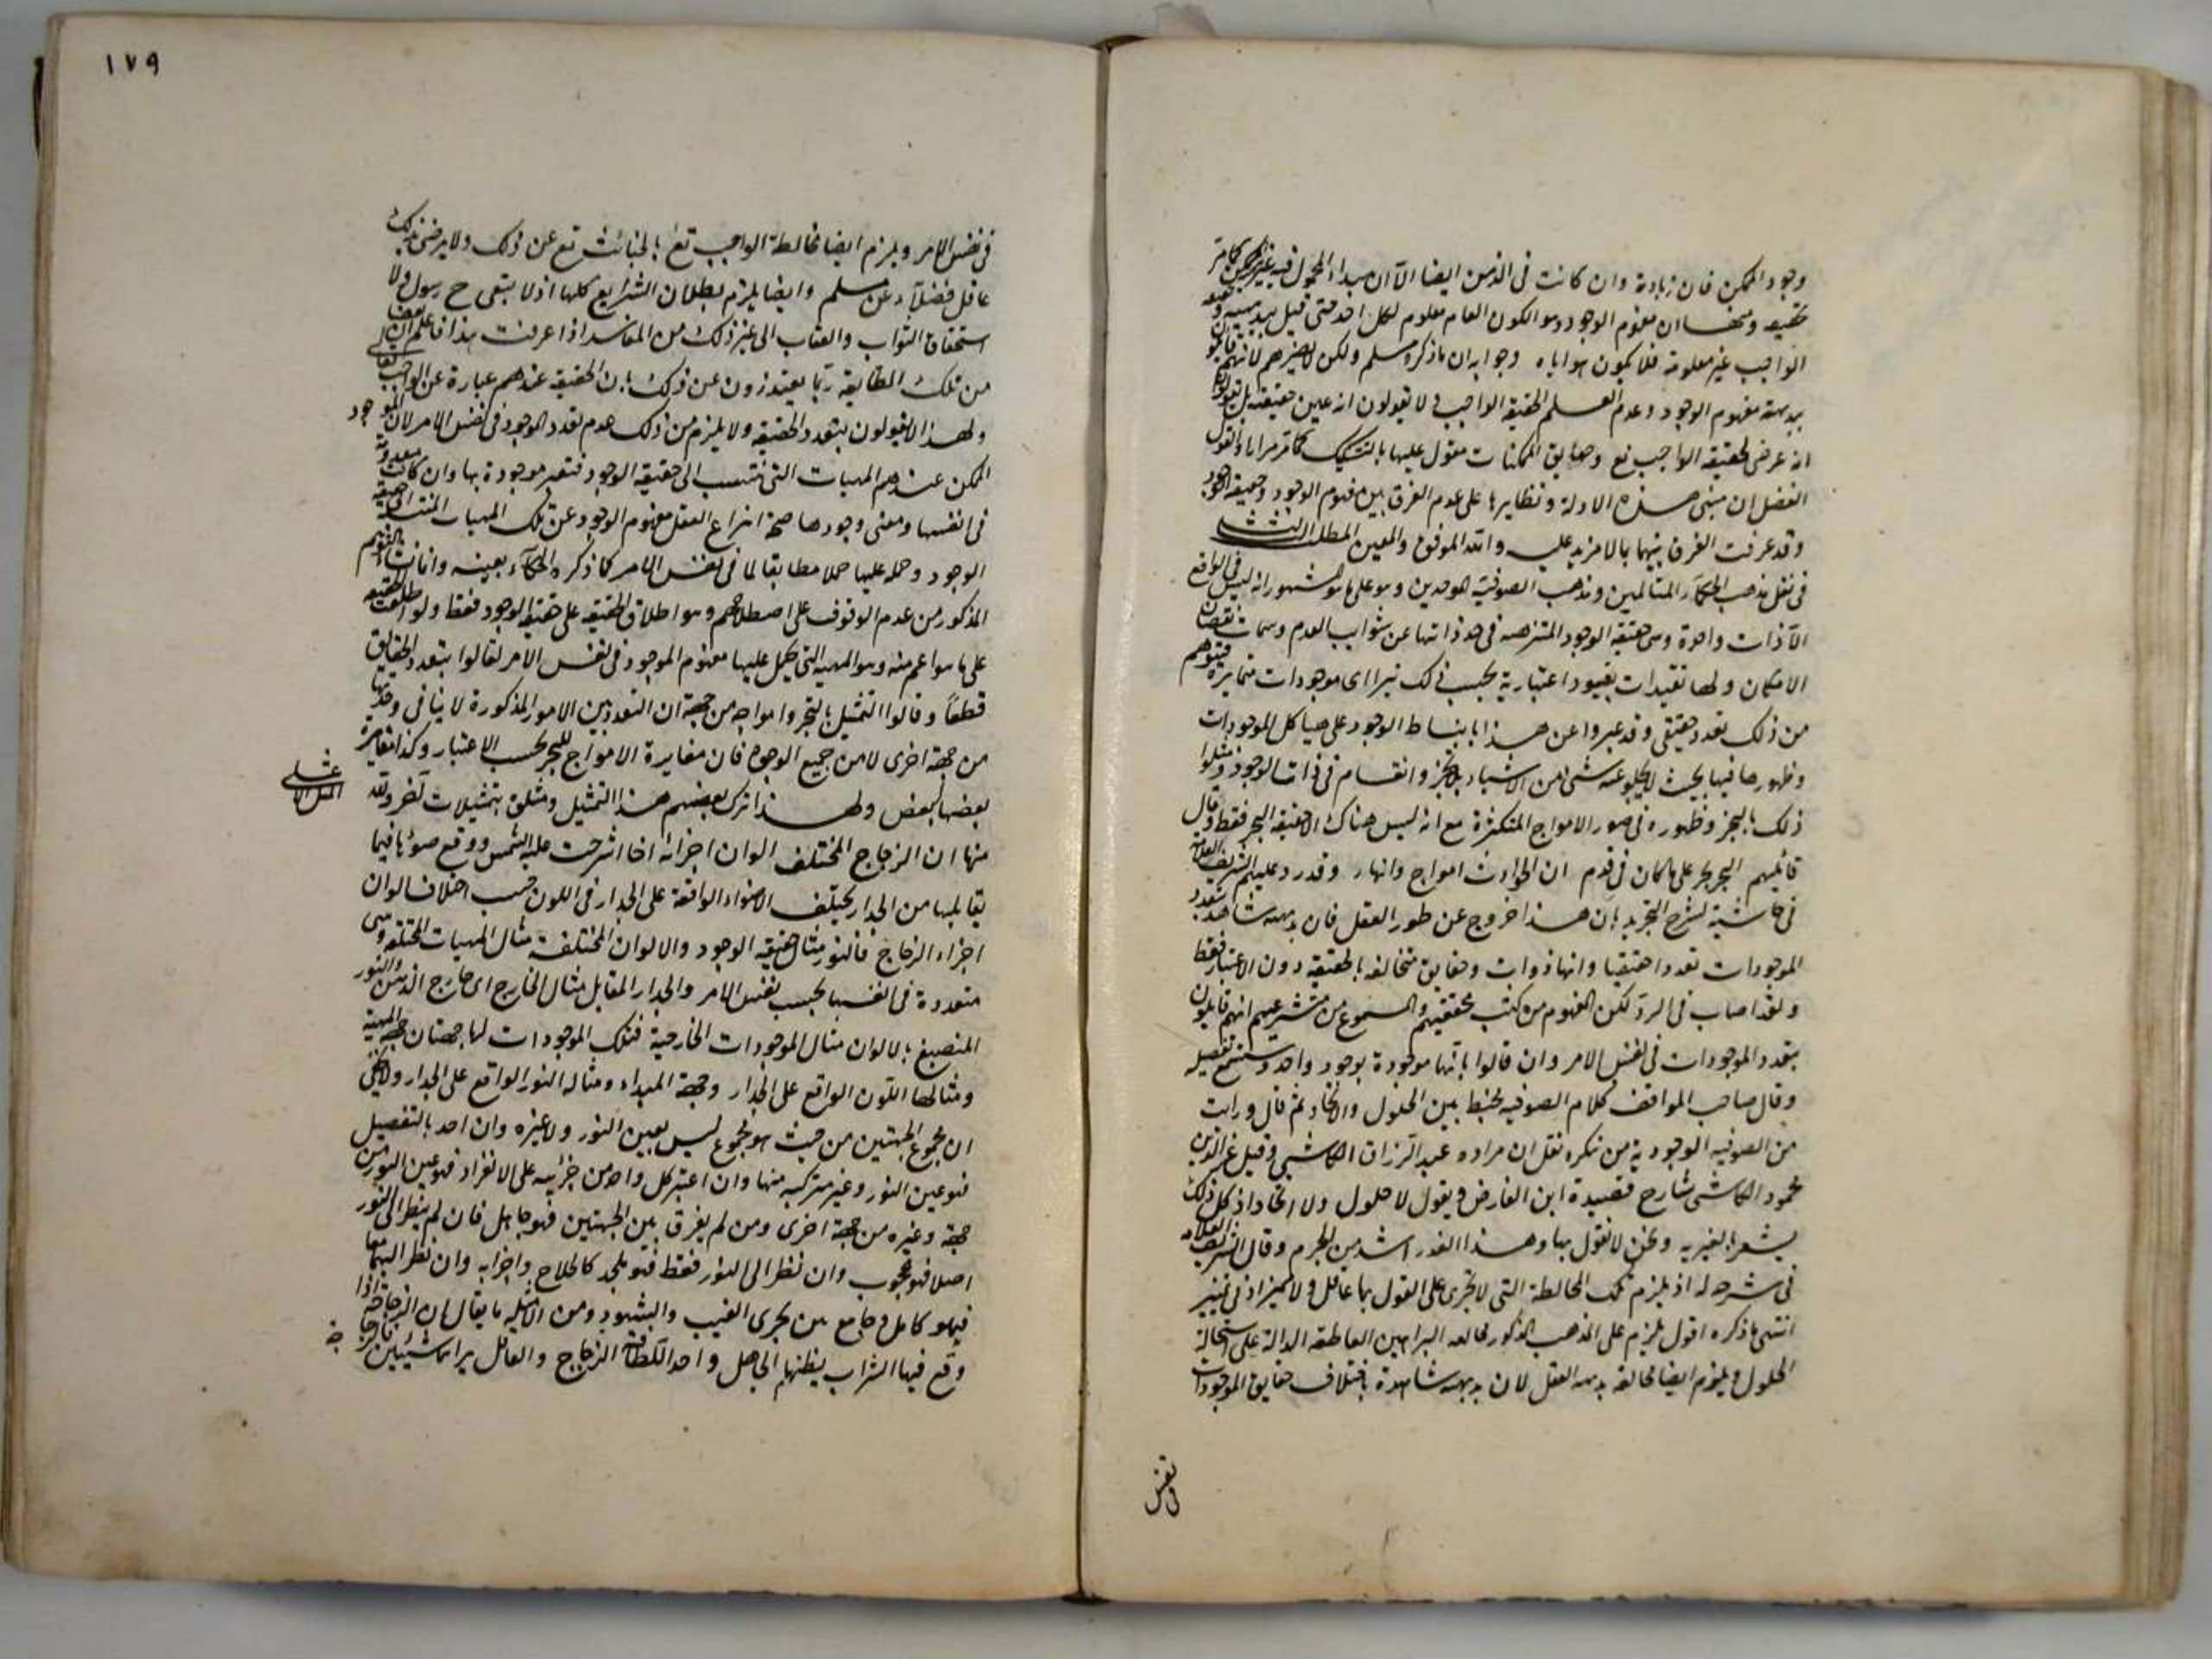 وجود الممكن فان زيادة وان كانت فى الذهن ايضا الا ان مبداء المحمول فيه غير الممكن كما مر
تحقيقه ومنها ان مفهوم الوجود وهو الكون العام معلوم لكل احد حتى قيل ببديهيته وحقيقة
الواجب غير معلومة فلا يكون هو اياه وجوابه ان ما ذكره مسلم ولكن لا يضرهم لانهم قائلون
ببديهة مفهوم الوجود وعدم العلم بحقيقة الواجب ولا يقولون انه عين حقيقته بل يقولون
انه عرضى لحقيقة الواجب تع وحقايق الممكنات مقول عليها بالتشكيك كما مر مرارا والقول
الفصل ان مبنى هذه الادلة ونظايرها على عدم الفرق بين مفهوم الوجود وحقيقة الوجود
وقد عرفت الفرق بينهما بما لا مزيد عليه والله الموفق والمعين المطلب الثالث
فى نقل مذهب الحكماء المتألهين ومذهب الصوفية الموحدين وهو على ما هو المشهور انه ليس فى الواقع
الا ذات واحدة وهى حقيقة الوجود المتنزهة فى حد ذاتها عن شوايب العدم وسمات نقصان
الامكان ولها تقيدات بقيود اعتبارية بحسب ذلك تتراأى موجودات متمايزة فيتوهم
من ذلك تعدد حقيقى وقد عبروا عن هذا بانبساط الوجود على هياكل الموجودات
وظهورها فيها بحيث لا يخلو عنه شىء من الاشياء بلا تجز وانقسام فى ذات الوجود ومثلوا
ذلك بالبحر وظهوره فى صور الامواج المتكثرة مع انه ليس هناك الا حقيقة البحر فقط وقال
قائلهم البحر بحر على ما كان فى قدم ان الحوادث امواج وانهار وقد رد عليهم الشريف العلامة
فى حاشية لشرح التجريد بان هذا خروج عن طور العقل فان بديهته شاهدة بتعدد
الموجودات تعددا حقيقيا وانها ذوات وحقايق متخالفة بالحقيقة دون الاعتبار فقط
ولقد اصاب فى الرد لكن المفهوم من كتب محققيهم والمسموع من متشرعيهم انهم قايلون
بتعدد الموجودات فى نفس الامر وان قالوا بانها موجودة بوجود واحد وستسمع تفصيله
وقال صاحب المواقف كلام الصوفية مخبط بين الحلول والاتحاد ثم قال ورايت
من الصوفية الوجودية من ينكره نقل ان مراده عبد الرزاق الكاشى وقيل عز الدين
محمود الكاشى شارح قصيدة ابن الفارض ويقول لا حلول ولا اتحاد اذ كل ذلك
يشعر بالغيرية ونحن لا نقول بها وهذا العذر اشد من الجرم وقال الشريف العلامه
فى شرحه له اذ يلزم تلك المخالطة التى لا يجترى على القول بها عاقل ولا مميز ادنى تمييز
انتهى ما ذكره اقول يلزم على المذهب المذكور مخالفة البراهين القاطعة الدالة على استحالة
الحلول ويلزم ايضا مخالفة بديهة العقل لان بديهته شاهدة باختلاف حقايق الموجودات
فى نفس
١٧٩
فى نفس الامر ويلزم ايضا مخالطة الواجب تع بالخبائث تع عن ذلك ولا يرضى بذلك
عاقل فضلا عن مسلم وايضا يلزم بطلان الشرايع كلها اذ لا يبقى ح رسول ولا
استحقاق الثواب والعقاب الى غير ذلك من المفاسد اذا عرفت هذا فاعلم ان بعضا
من تلك الطايفة ربما يعتذرون عن ذلك بان الحقيقة عندهم عبارة عن الواجب تعالى
ولهذا لا يقولون بتعدد الحقيقة ولا يلزم من ذلك عدم تعدد الموجود فى نفس الامر لان الموجود
الممكن عندهم المهيات التى تنتسب الى حقيقة الوجود فتصير موجودة بها وان كانت معدومة
فى انفسها ومعنى وجودها صحة انتزاع العقل مفهوم الوجود عن تلك المهيات المنتسبة الى حقيقة
الوجود وحمله عليها حملا مطابقا لما فى نفس الامر كما ذكره الحكماء بعينه وانما نشاء التوهم
المذكور من عدم الوقوف على اصطلاحهم وهو اطلاق الحقيقة على حقيقة الوجود فقط ولو اطلقت الحقيقة
على ما هو اعم منه وهو المهية التى يحمل عليها مفهوم الموجود فى نفس الامر لقالوا بتعدد الحقايق
قطعا وقالوا التمثيل بالبحر وامواجه من جهة ان التعدد بين الامور المذكورة لا ينافى وحدتها
من جهة اخرى لا من جميع الوجوه فان مغايرة الامواج للبحر بحسب الاعتبار وكذا مغايرة
بعضها لبعض ولهذا ترك بعضهم هذا التمثيل ومثلوا بتمثيلات اخر ولله
المثل الاعلى
منها ان الزجاج المختلف الوان اجزائه اذا اشرقت عليه الشمس ووقع ضوئها فيما
يقابلها من الجدار يختلف الاضواء الواقعة على الجدار فى اللون حسب اختلاف الوان
اجزاء الزجاج فالنور مثال حقيقة الوجود والالوان المختلفة مثال المهيات المختلفة وهى
متعددة فى انفسها بحسب نفس الامر والجدار المقابل مثال الخارج اى خارج الذهن والنور
المنصبغ بالالوان مثال الموجودات الخارجية فتلك الموجودات لها جهتان جهة المهية
ومثالها اللون الواقع على الجدار وجهة المبداء ومثاله النور الواقع على الجدار ولا يخفى
ان مجموع الجهتين من حيث هو مجموع ليس بعين النور ولا غيره وان اخذ بالتفصيل
فهو عين النور وغير مركبه منها وان اعتبر كل واحد من جزئيه على الانفراد فهو عين النور من
جهة وغيره من جهة اخرى ومن لم يفرق بين الجهتين فهو جاهل فان لم ينظر الى النور
اصلا فهو محجوب وان نظر الى النور فقط فهو ملحد كالحلاج واحزابه وان نظر اليهما معا
فهو كامل وجامع بين بحرى الغيب والشهود ومن الامثلة ما يقال ان الزجاجة اذا
وقع فيها الشراب يظنهما الجاهل واحدا للطافة الزجاج والعاقل يراهما شيئين